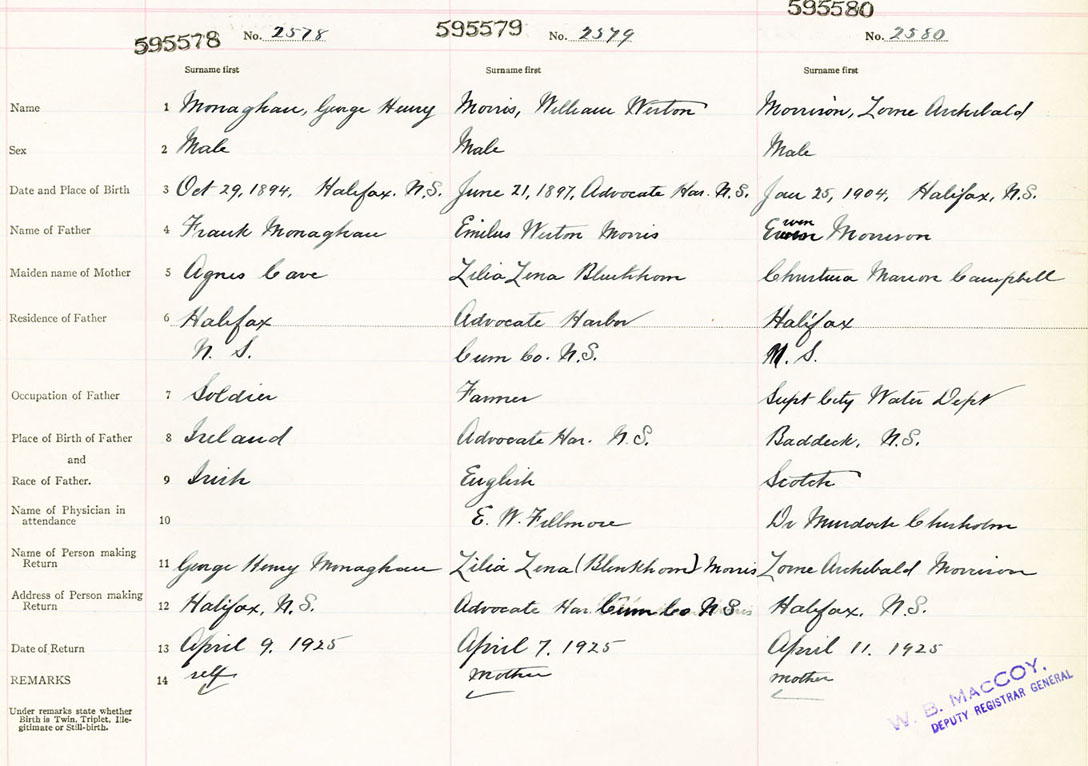 595578 No. 2578 595579 No. 2579 595580 No. 2580
Surname first Surname first Surname first
Name 1 Monaghan, George Henry Morris, William Weston Morrison, Lorne Archibald
Sex 2 Male Male Male
Date and Place of Birth 3 Oct 29, 1894, Halifax. N.S. June 21, 1897, Advocate Har. N.S. Jan 25, 1904, Halifax, N.S.
Name of Father 4 Frank Monaghan Emilus Weston Morris Morrison
Maiden name of Mother 5 Agnes Cave Lilia Lena Blenkhorn Christina Marion Campbell
Residence of Father 6 Halifax Advocate Harbor Halifax
N. S. Cum Co. N.S. N. S.
Occupation of Father 7 Soldier Farmer Supt City Water Dept
Place of Birth of Father 8 Ireland Advocate Har. N.S. Baddeck, N.S.
and
Race of Father. 9 Irish English Scotch
Name of Physician in
attendance 10 E. W. Fillmore Dr Murdoch Chisholm
Name of Person making
Return 11 George Henry Monaghan Lilia Lena (Blenkhorn) Morris Lorne Archibald Morrison
Address of Person making
Return 12 Halifax, N.S. Advocate Har. Cum Co N.S Halifax, N.S.
Date of Return 13 April 9, 1925 April 7, 1925 April 11, 1925
REMARKS 14 self mother mother
Under remarks state whether
Birth is Twin, Triplet, Ille-
gitimate or Still-birth.
W. B. MACCOY,
DEPUTY REGISTRAR GENERAL